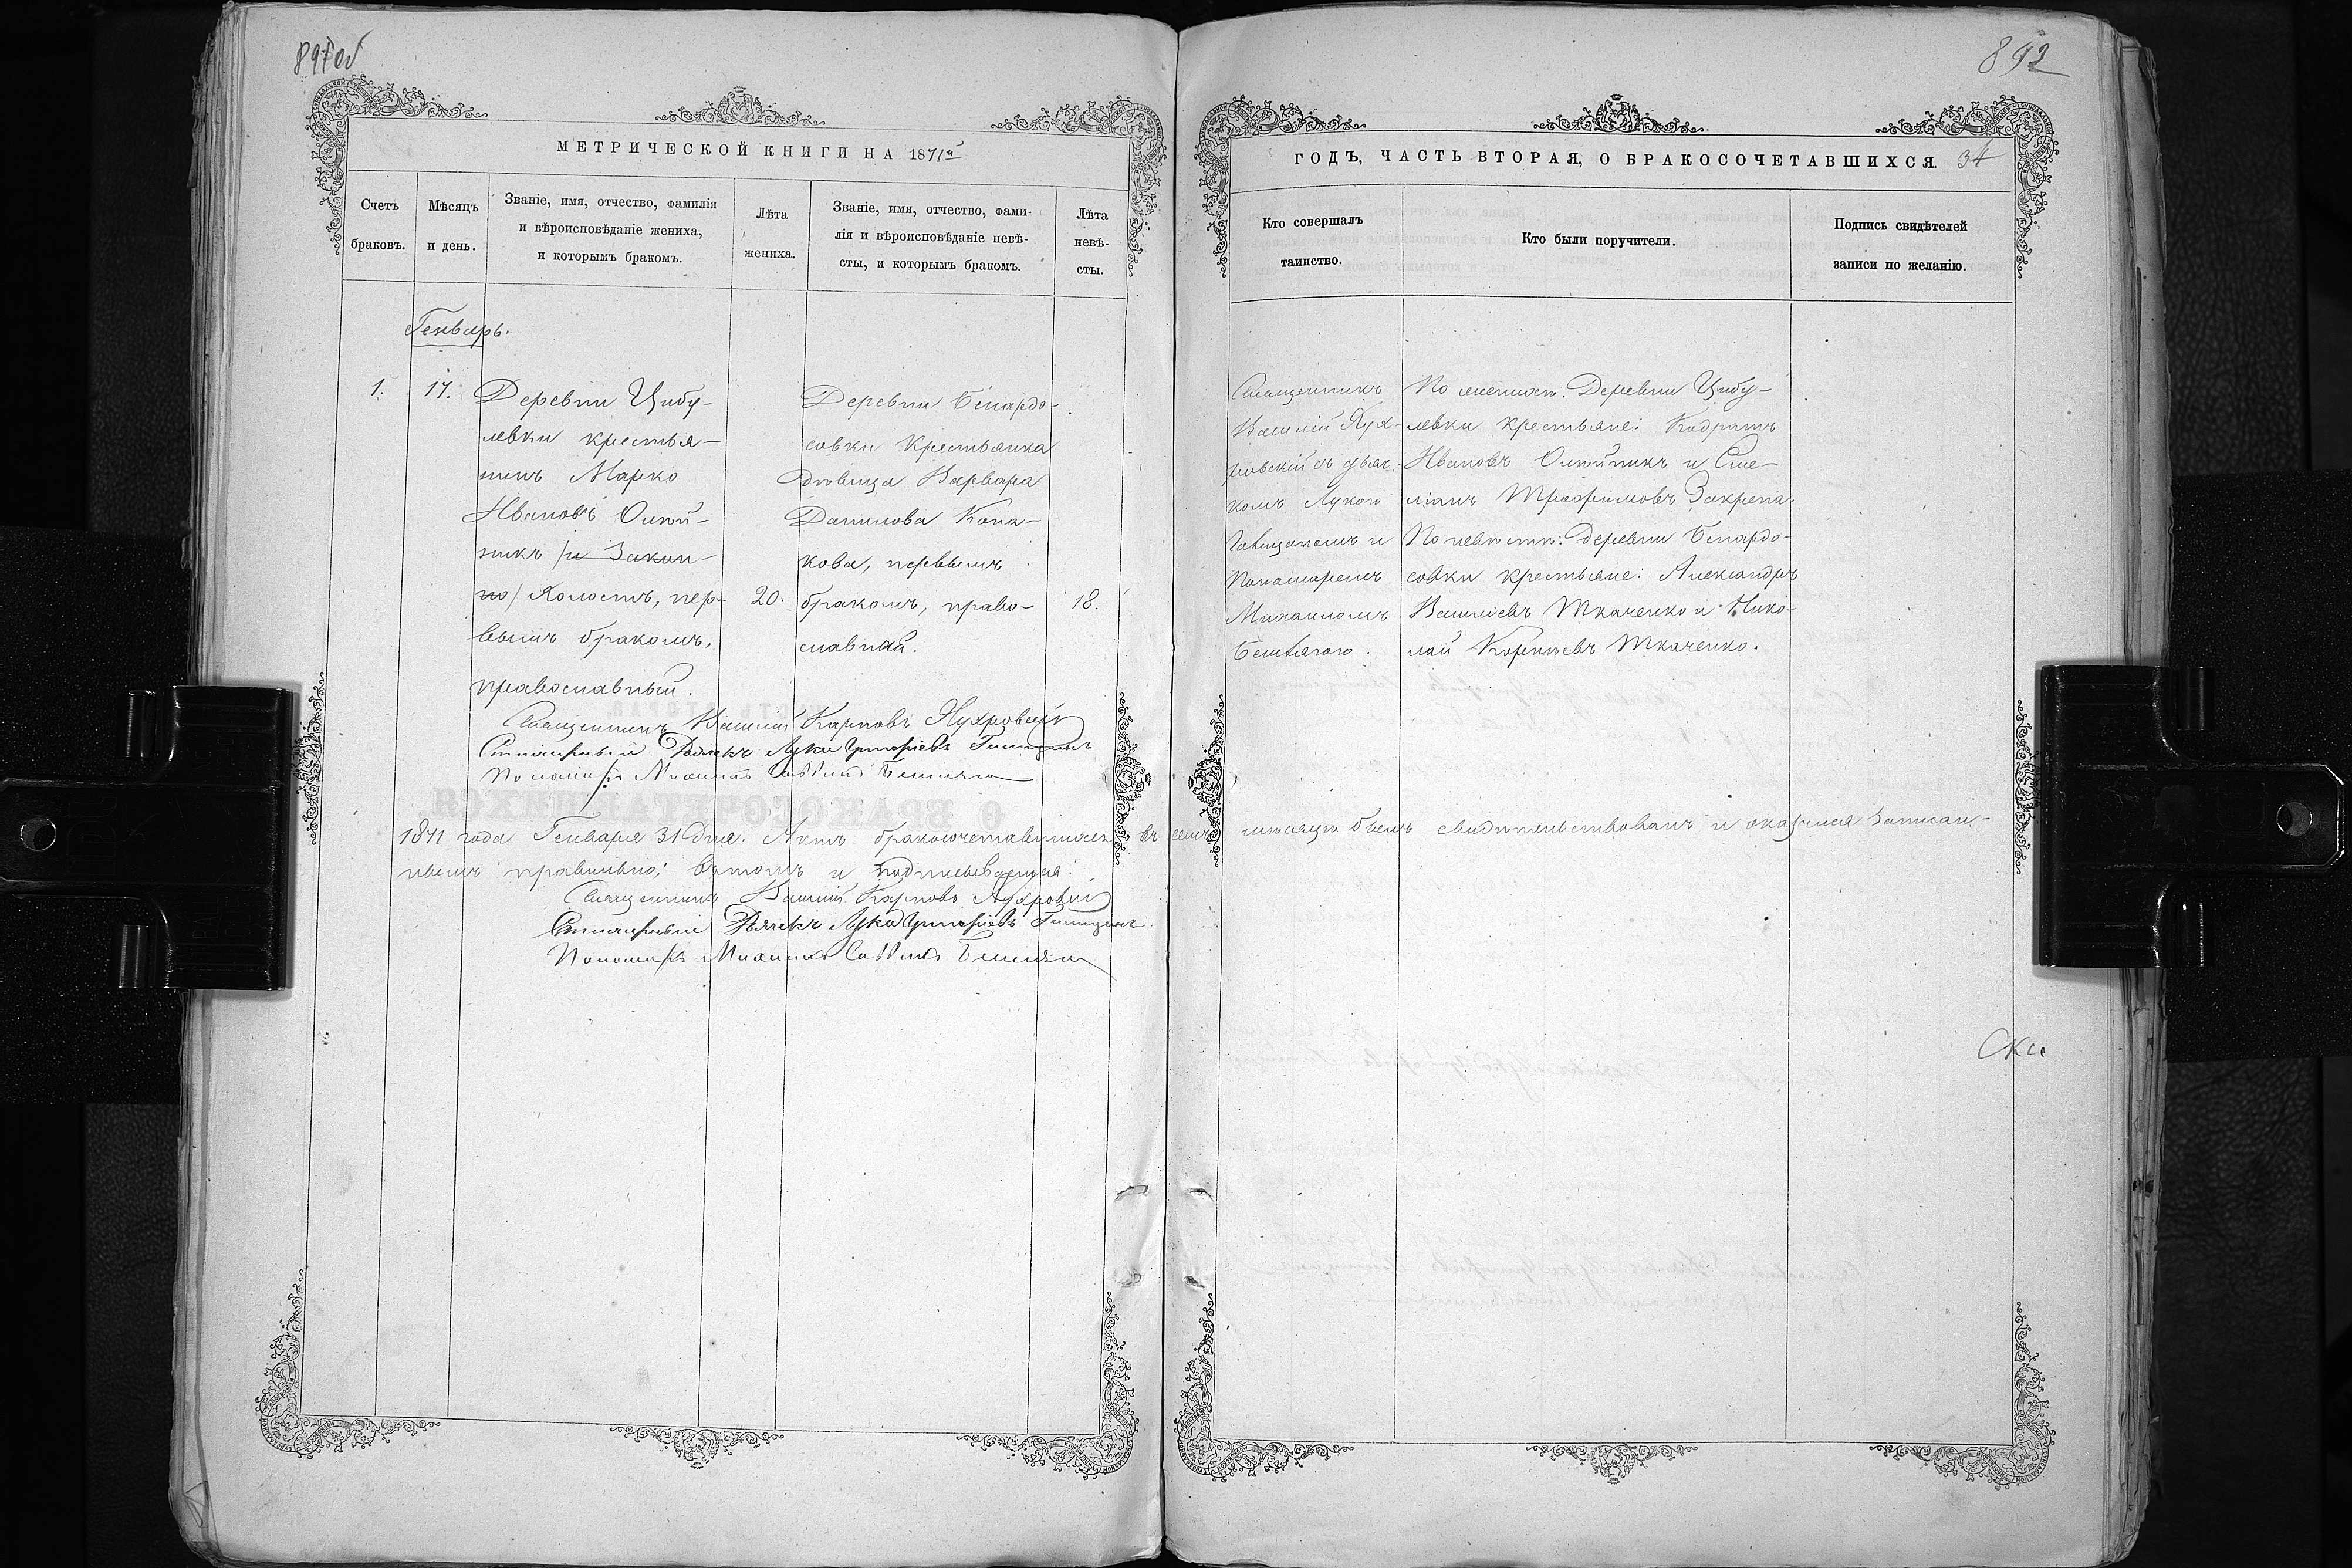 891об
МЕТРИЧЕСКОЙ КНИГИ НА 1871й
Счетъ браковъ.
Мѣсяцъ и день.
Званіе, имя, отчество, фамилія
и вѣроисповѣданіе жениха,
и которымъ бракомъ.
Лѣта
жениха.
Званіе, имя, отчество, фами-
лія и вѣроисповѣданіе невѣ-
сты, и которымъ бракомъ.
Лѣта
невѣ-
сты.
Генварь.
1.
17.
Деревни Цибу-
левки крестья-
нинъ Марко
Ивановъ Олій-
никъ /и Закон-
но/ Холостъ, пер-
вымъ бракомъ,
православный.
20.
Деревни Бернардо-
совки Крестьянка
Дѣвица Варвара
Данилова Копа-
кова, первымъ
бракомъ, право-
славной.
18.
Священникъ Василій Карповъ
Дьячекъ Лука Григоріевъ
Пономарь Михаилъ
1871 года Генваря 31 дня. Актъ бракосочетавшихся въ семъ мѣсяцѣ былъ свидѣтельствованъ и оказался записан-
нымъ правильно; въ томъ и подписываемся:
Священникъ Василій Карповъ
Дьячекъ Лука Григоріевъ
Пономарь Михаилъ
892
ГОДЪ, ЧАСТЬ ВТОРАЯ, О БРАКОСОЧЕТАВШИХСЯ. 34
Кто совершалъ
таинство.
Кто были поручители.
Подпись свидѣтелей
записи по желанію.
Священникъ
Василій
съ дьяч-
комъ Лукою
и
Пономаремъ
Михаиломъ
По женихѣ: Деревни Цибу-
левки крестьяне: Кодратъ
Ивановъ Олійникъ и Еме-
ліанъ Трофимовъ Закрепа.
По невѣстѣ: деревни
совки крестьяне: Александръ
Василіевъ Ткаченко и Нико-
лай Корніевъ Ткаченко.